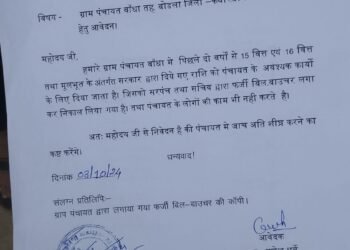 विषय - ग्राम पंचायत बाँधा तह. बोडला जिला
हेतु आवेदन।
महोदय जी,
हमारे ग्राम पंचायत बाँधा में पिछले दो वर्षो से 15 वित्त एवं 16 वित्त
तथा मूलभूत के अंतर्गत सरकार द्वारा दिये गए राशि को पंचायत के अवश्यक कार्यो
के लिए दिया जाता है। जिसको सरपंच तथा सचिव द्वारा फर्जी बिल वाउचर लगा
कर निकाल लिया गया है। तथा पंचायत के लोगों की काम भी नही करते है।
अतः महोदय जी से निवेदन है की पंचायत मे जाच अति शीघ्र करने का
कष्ट करेंगे।
धन्यवाद!
दिनांक 03/10/24
संलग्न प्रतिलिपि:-
ग्राप पंचायत द्वारा लगाया गया फर्जी बिल-वाउचर की कॉपी।
आवेदक